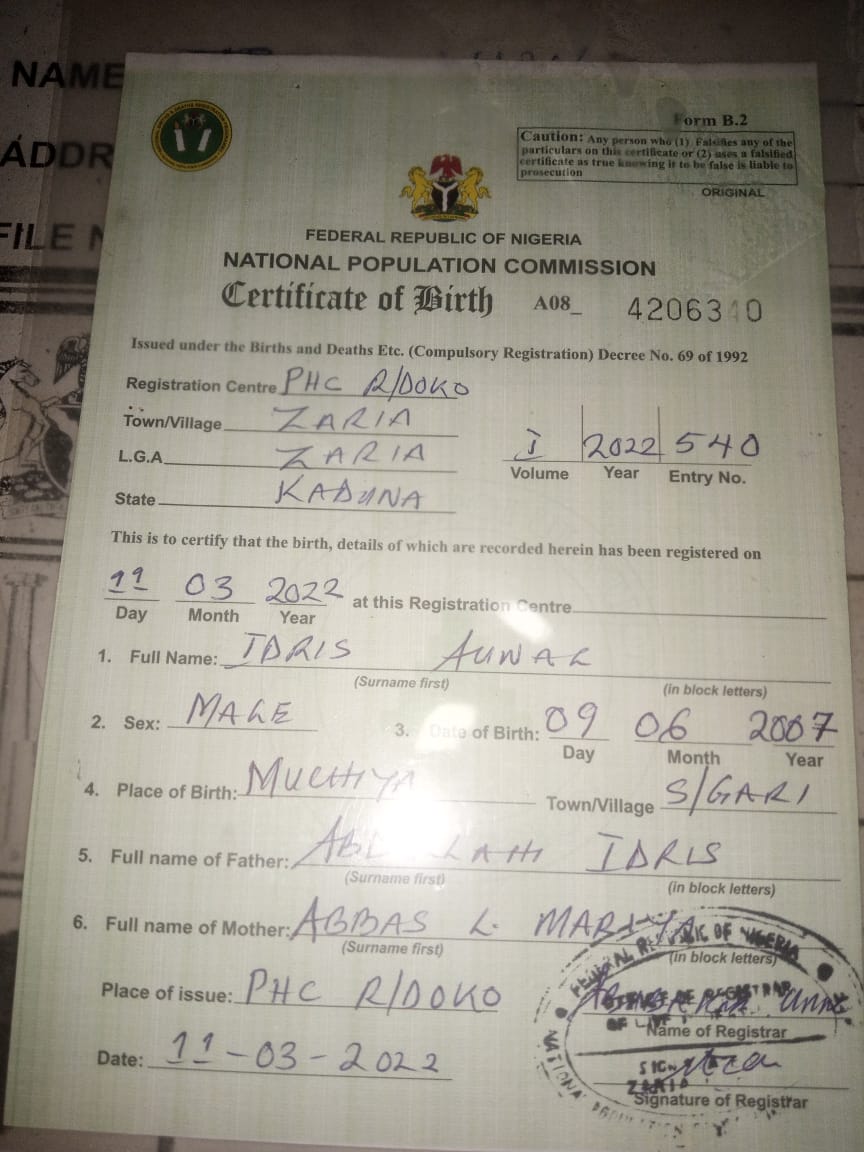 NAME
ADDR
FILE N
Form B.2
Caution: Any person who (1) Falsifies any of the
particulars on this certificate or (2) uses a falsified
certificate as true knowing it to be false is liable to
prosecution
ORIGINAL
FEDERAL REPUBLIC OF NIGERIA
NATIONAL POPULATION COMMISSION
Certificate of Birth A08_ 4206340
Issued under the Births and Deaths Etc. (Compulsory Registration) Decree No. 69 of 1992
Registration Centre PHC R/DOKO
Town/Village ZARIA
L.G.A ZARIA
I 2022 540
Volume Year Entry No.
State KADUNA
This is to certify that the birth, details of which are recorded herein has been registered on
11 03 2022 at this Registration Centre
Day Month Year
1. Full Name: IDRIS AUWAL
(Surname first) (in block letters)
2. Sex: MALE 3. Date of Birth: 09 06 2007
Day Month Year
4. Place of Birth: MUCHIYA Town/Village S/GARI
5. Full name of Father: IDRIS
(Surname first) (in block letters)
6. Full name of Mother: ABBAS L. MARIYA
(Surname first) (in block letters)
Place of issue: PHC R/DOKO
Name of Registrar
Date: 11-03-2022
Signature of Registrar
FEDERAL REPUBLIC OF NIGERIA
ZARIA